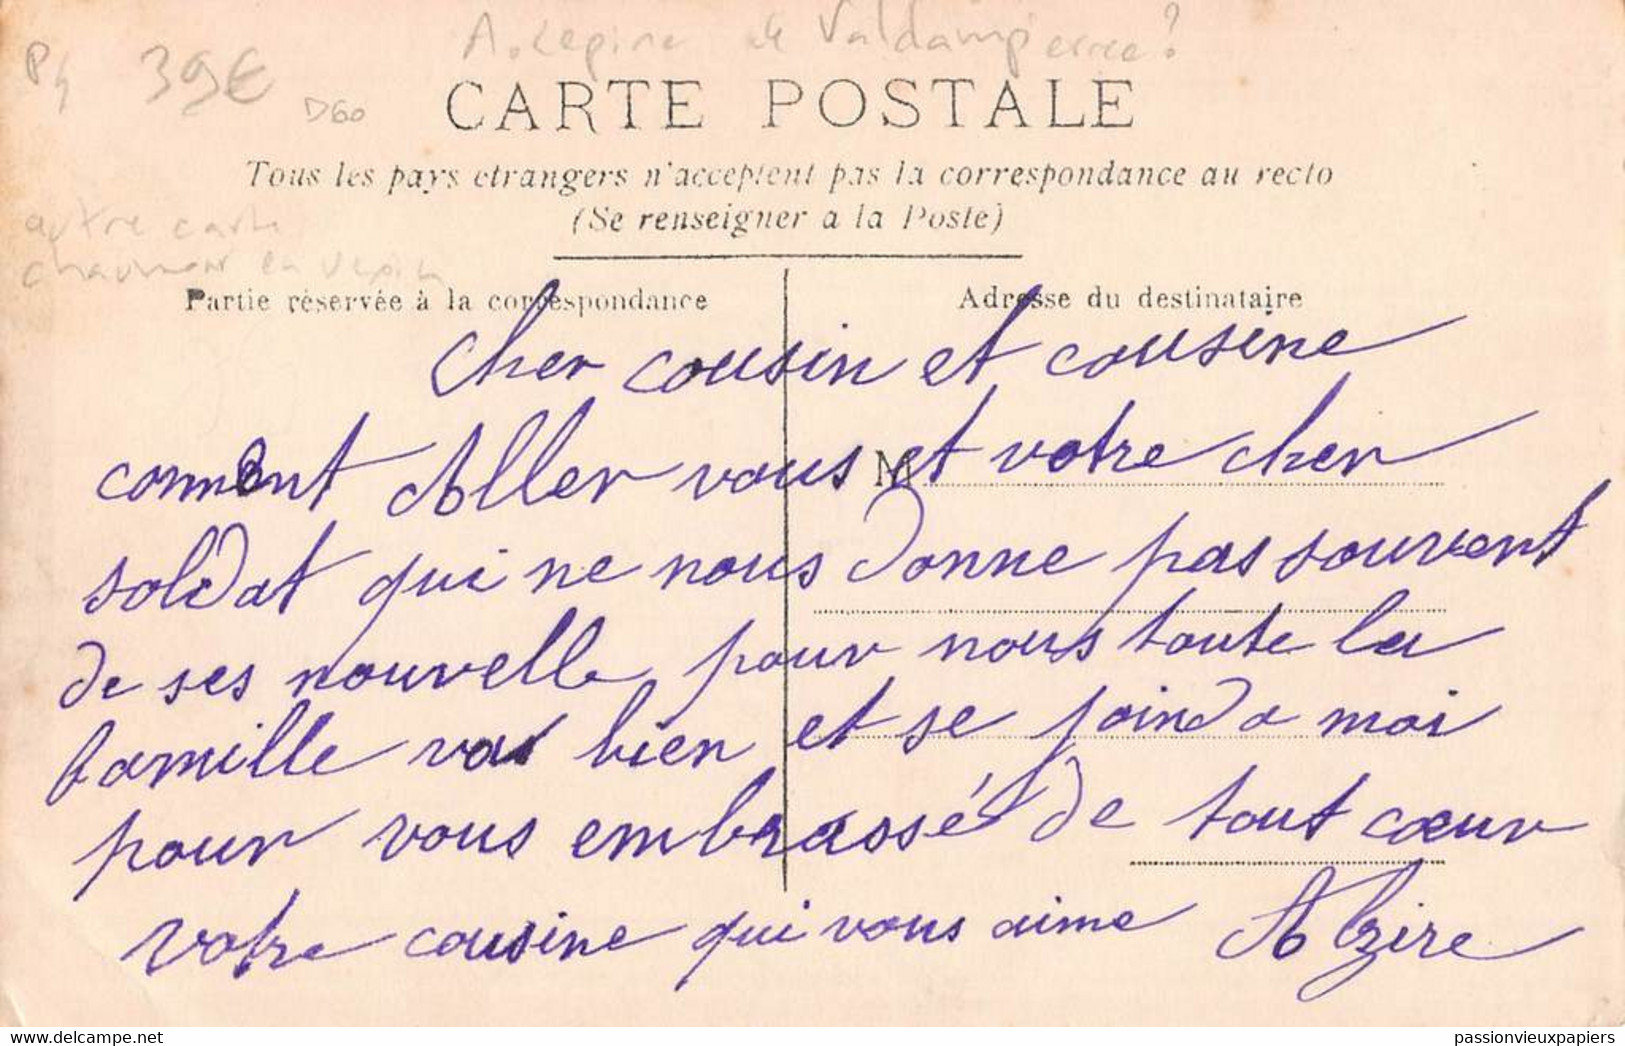 A. Lepine de Valdampierre?
39€
D60
CARTE POSTALE
Tous les pays etrangers n'acceptent pas la correspondance au recto
(Se renseigner a la Poste)
autre carte
chaumont en vexin
Partie réservée à la correspondance
Adresse du destinataire
M
cher cousin et cousine
comment Aller vous et votre cher
soldat qui ne nous donne pas souvent
de ses nouvelle pour nous toute la
famille vas bien et se joind a moi
pour vous embrassé de tout cœur
votre cousine qui vous aime Alzire
passionvieuxpapiers